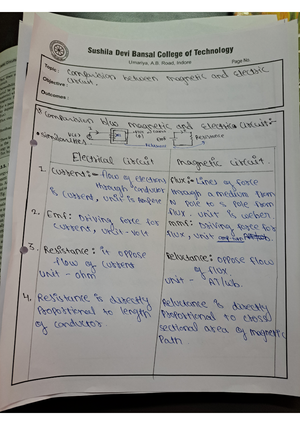 Sushila Devi Bansal College of Technology
Umariya, A.B. Road, Indore
Page No.
Topic : Comparision between magnetic and electric
circuit.
Objective :
Outcomes :
Comparision b/w magnetic and electric circuit:-
Similarities
Electrical circuit
1. Current:- flow of electron
through conductor
is current, unit is
2. Emf: Driving force for
current, unit - volt
3. Resistance: it oppose
flow of current
unit - ohm
4. Resistance is directly
proportional to length
of conductor.
magnetic circuit.
flux:- Lines of force
through a medium from
N pole to S pole from
flux. unit is weber
mmf: Driving force for
flux, unit
Reluctance: oppose flow
of flux
unit - AT/wb.
Reluctance is directly
proportional to cross
sectional area of magnetic
path